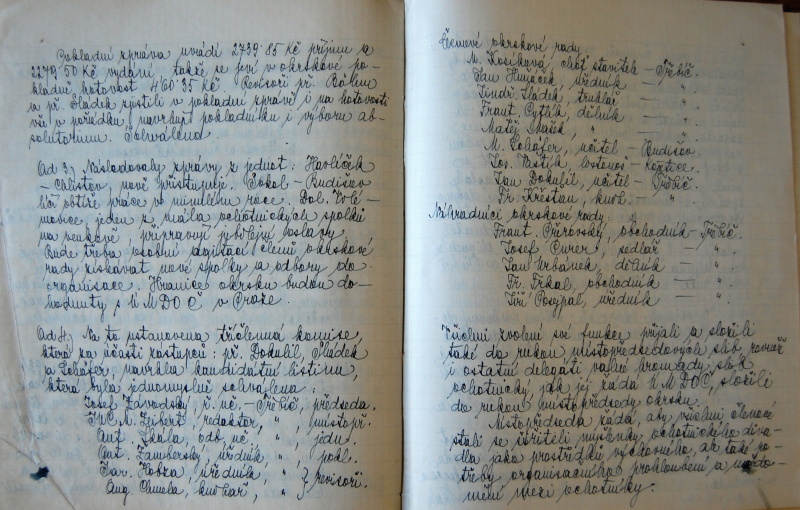 Pokladní zpráva uvádí 2739·85 Kč příjmu a
2279·50 Kč vydání takže se jeví v okrskové po-
kladně hotovost 460·35 Kč. Revisoři př. Böhm
a př. Sládek zjistili v pokladní zprávě i na hotovosti
vše v pořádku, navrhují pokladníku i výboru ab-
solutorium. Schváleno.
Ad 3. Následovaly zprávy z jednot: Havlíček
– Chlístov, nově přistupuje. Sokol – Budišov
líčí obtíže práce v minulém roce. Dol. Vilé-
movice, jeden z mála ochotnických spolků
na venkově, připravují jubilejní oslavy.
Bude třeba osobní agitací členů okrskové
rady získávat nové spolky a odbory do
organisace. Hranice okrsku budou do-
hodnuty s ÚMDOČ v Praze.
Ad 4. Na to ustanovena tříčlenná komise,
která za účasti zástupců: př. Dokulil, Sládek
a Schäfer, navrhla kandidátní listinu,
která byla jednomyslně schválena:
Josef Závodský, ř. uč. – Třebíč, předseda.
JUC. M. Zejbert, redaktor, " , místopř.
Ant. Skala, odb. uč. " , jedn.
Ant. Zamberský, úředník " , pokl.
Jar. Kobza, úředník, " } revisoři.
Aug. Chmela, knihař, "
Členové okrskové rady
M. Kosíková, choť stavitele – Třebíč.
Jan Hujáček, úředník – " .
Jindř. Sládek, truhlář – " .
Frant. Cyfřík, dělník – " .
Matěj Mašek, " – " .
M. Schäfer, učitel – Budišov
Jos. Vaštík, – Kožlice.
Jan Dokulil, učitel – Třebíč.
Fr. Křesťan, knih. – " .
Náhradníci okrskové rady:
Frant. Přerovský, obchodník – Třebíč.
Josef Curer, sedlář – " .
Jan Urbánek, dělník – " .
Fr. Frkal, obchodník – " .
Jiří Pospýpal, úředník – " .
Všichni zvolení své funkce přijali a složili
také do rukou místopředsedových slib, rovněž
i ostatní delegáti valné hromady slib
ochotnický jak jej žádá ÚMDOČ, složili
do rukou místopředsedy okrsku.
Místopředseda žádá, aby všichni členové
stali se šiřiteli myšlenky ochotnického diva-
dla jako prostředku výchovného, a také po-
třeby organisačního prohloubení a uvědo-
mění mezi ochotníky.